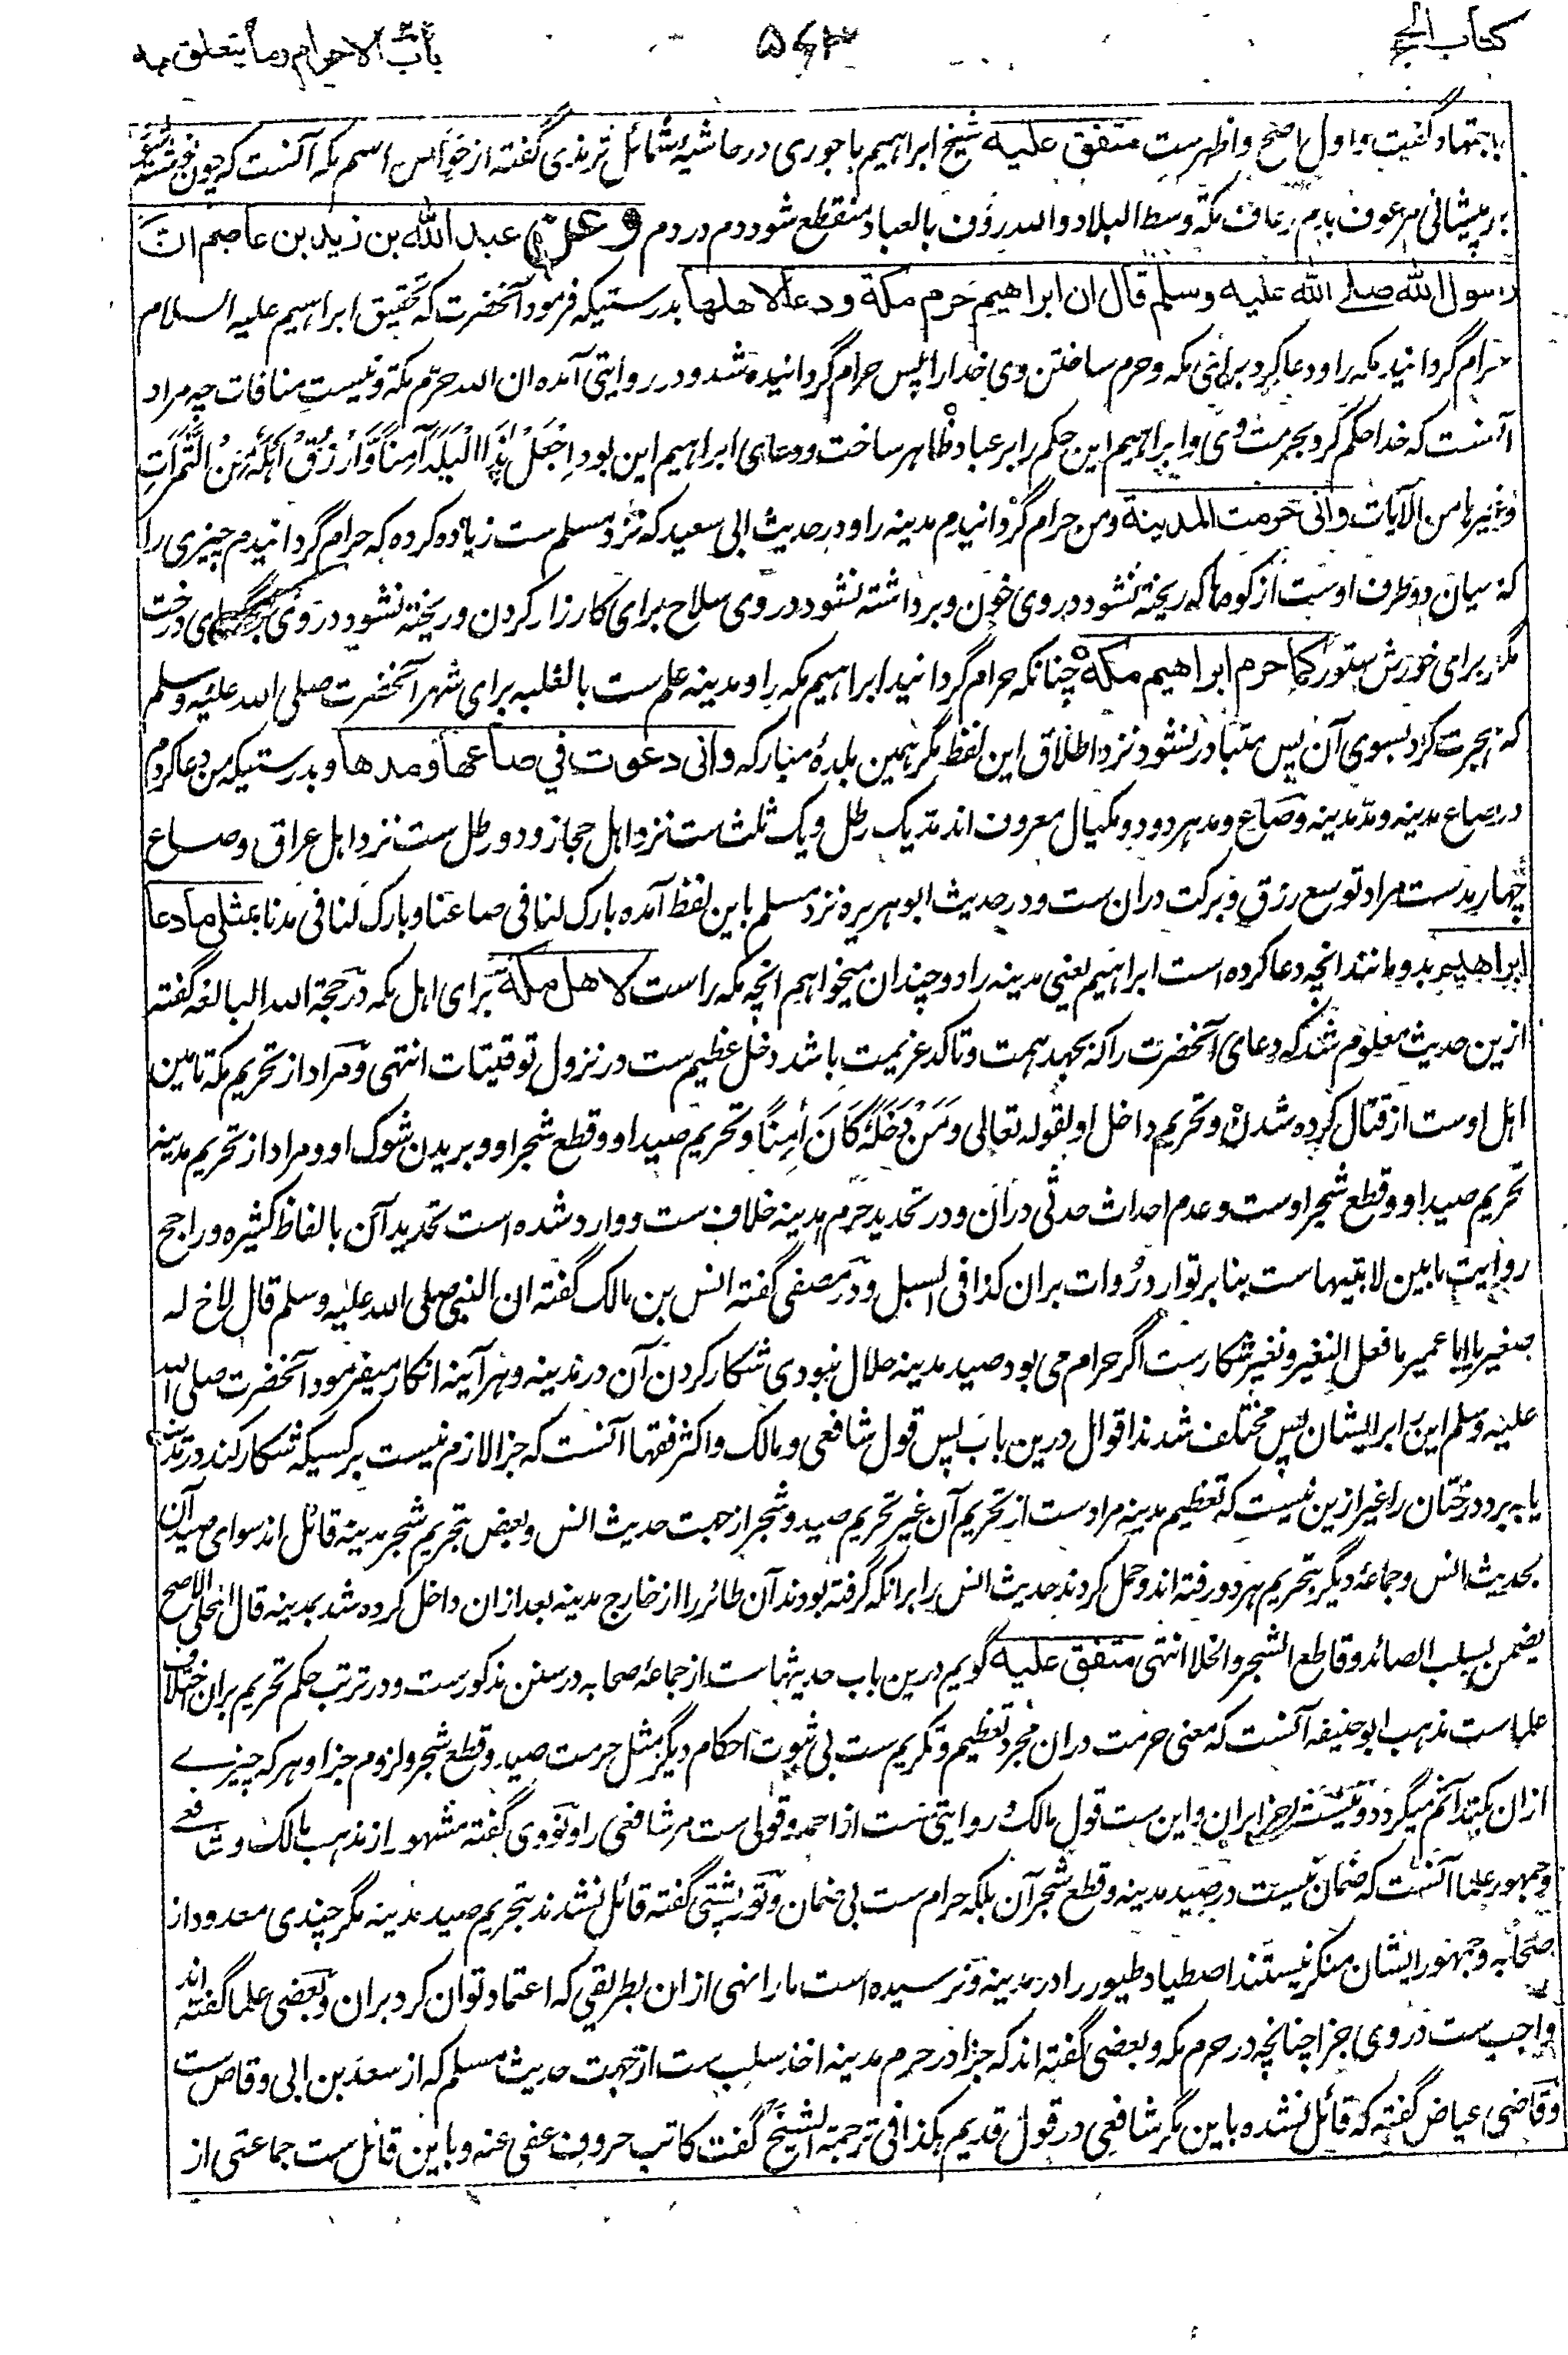 کتاب الحج
۵۶۳
باب الاحرام وما یتعلق به
باجتهاد گفت و اول اصح و اظهرست متفق علیه شیخ ابراهیم باجوری در حاشیهٔ شمائل ترمذی گفته از خواص اسم مکه آنست که چون نوشته شود
بر پیشانی مرعوف بدم رعاف مکة وسط البلاد والله رؤف بالعباد منقطع شود دم در دم وعن عبد الله بن زید بن عاصم ان
رسول الله صلی الله علیه وسلم قال ان ابراهیم حرم مکة ودعا لاهلها بدرستیکه فرمود آنحضرت که تحقیق ابراهیم علیه السلام
حرام گردانید مکه را و دعا کرد برای مکه و حرم ساختن وی خدا را پس حرام گردانیده شد و در روایتی آمده ان الله حرّم مکة و نیست منافات چه مراد
آنست که خدا حکم کرد بحرمت وی و ابراهیم این حکم را بر عباد ظاهر ساخت و دعای ابراهیم این بود اِجْعَلْ هٰذَا الْبَلَدَ آمِنًا وَّارْزُقْ اَهْلَهٗ مِنَ الثَّمَرٰتِ
وغیرها من الآیات وانی حرمت المدینة و من حرام گردانیدم مدینه را و در حدیث ابی سعید که نزد مسلم ست زیاده کرده که حرام گردانیدم چیزی را
که میان دو طرف اوست از کوهها که ریخته نشود در وی خون و برداشته نشود در وی سلاح برای کارزار کردن و ریخته نشود در وی برگهای درخت
مگر برای خورش ستور کما حرم ابراهیم مکة چنانکه حرام گردانید ابراهیم مکه را و مدینه علم ست بالغلبه برای شهر آنحضرت صلی الله علیه وسلم
که هجرت کرد بسوی آن پس متبادر نشود نزد اطلاق این لفظ مگر همین بلدهٔ مبارکه وانی دعوت فی صاعها ومدها و بدرستیکه من دعا کردم
در صاع مدینه و مدّ مدینه و صاع و مد هر دو دو مکیال معروف اند مد یک رطل و یک ثلث ست نزد اهل حجاز و دو رطل ست نزد اهل عراق و صاع
چهار مدست مراد توسیع رزق و برکت دران ست و در حدیث ابو هریره نزد مسلم باین لفظ آمده بارک لنا فی صاعنا و بارک لنا فی مدنا بمثلی ما دعا
ابراهیم بدو مانند انچه دعا کرده است ابراهیم یعنی مدینه را دو چندان میخواهم انچه مکه راست لاهل مکة برای اهل مکه در حجة الله البالغه گفته
ازین حدیث معلوم شد که دعای آنحضرت را که بجهد همت و تاکد عزیمت باشد دخل عظیم ست در نزول توقیتات انتهی و مراد از تحریم مکه تامین
اهل اوست از قتال کرده شدن و تحریم داخل او لقوله تعالی وَمَنْ دَخَلَهٗ كَانَ اٰمِنًا و تحریم صید او و قطع شجر او و بریدن شوک او و مراد از تحریم مدینه
تحریم صید او و قطع شجر اوست و عدم احداث حدثی دران و در تحدید حرم مدینه خلاف ست و وارد شده است تحدید آن بالفاظ کثیره و راجح
روایت مابین لابتیهاست بنابر توارد روات بران کذا فی السبل و در مصفی گفته انس بن مالک گفته ان النبی صلی الله علیه وسلم قال لاخ له
صغیر یا ابا عمیر ما فعل النغیر و نغیر شکارست اگر حرام می بود صید مدینه حلال نبودی شکار کردن آن در مدینه و هر آینه انکار میفرمود آنحضرت صلی الله
علیه وسلم این را بر ایشان پس مختلف شدند اقوال درین باب پس قول شافعی و مالک و اکثر فقها آنست که جزا لازم نیست بر کسیکه شکار کند در مدینه
یا ببرد درختان را غیر ازین نیست که تعظیم مدینه مرادست از تحریم آن غیر تحریم صید و شجر از جهت حدیث انس و بعض بتحریم شجر مدینه قائل اند سوای صید آن
بحدیث انس و جماعهٔ دیگر بتحریم هر دو رفته اند و حمل کردند حدیث انس را برانکه گرفته بودند آن طائر را از خارج مدینه بعد ازان داخل کرده شد بمدینه قال المحلی الاصح
یضمن بسلب الصائد و قاطع الشجر والخلا انتهی متفق علیه گویم درین باب حدیثهاست از جماعهٔ صحابه در سنن مذکورست و در ترتب حکم تحریم بران اختلاف
علماست مذهب ابو حنیفه آنست که معنی حرمت دران مجرد تعظیم و تکریم ست بی ثبوت احکام دیگر مثل حرمت صید و قطع شجر و لزوم جزا و هر که چیزے
ازان بکند آثم میگردد و نیست جزا بران و این ست قول مالک و روایتی ست از احمد و قولی ست مر شافعی را و نووی گفته مشهور از مذهب مالک و شافعی
و جمهور علما آنست که ضمان نیست در صید مدینه و قطع شجر آن بلکه حرام ست بی ضمان و تورپشتی گفته قائل نشدند بتحریم صید مدینه مگر چندی معدود از
صحابه و جمهور ایشان منکر نیستند اصطیاد طیور را در مدینه و نرسیده است ما را نهی ازان بطریقی که اعتماد توان کرد بران و بعضی علما گفته اند
واجب ست در وی جزا چنانچه در حرم مکه و بعضی گفته اند که جزا در حرم مدینه اخذ سلب ست از جهت حدیث مسلم که از سعد بن ابی وقاص ست
و قاضی عیاض گفته که قائل نشده باین مگر شافعی در قول قدیم هکذا فی ترجمة الشیخ گفت کاتب حروف عفی عنه و باین قائل ست جماعتی از